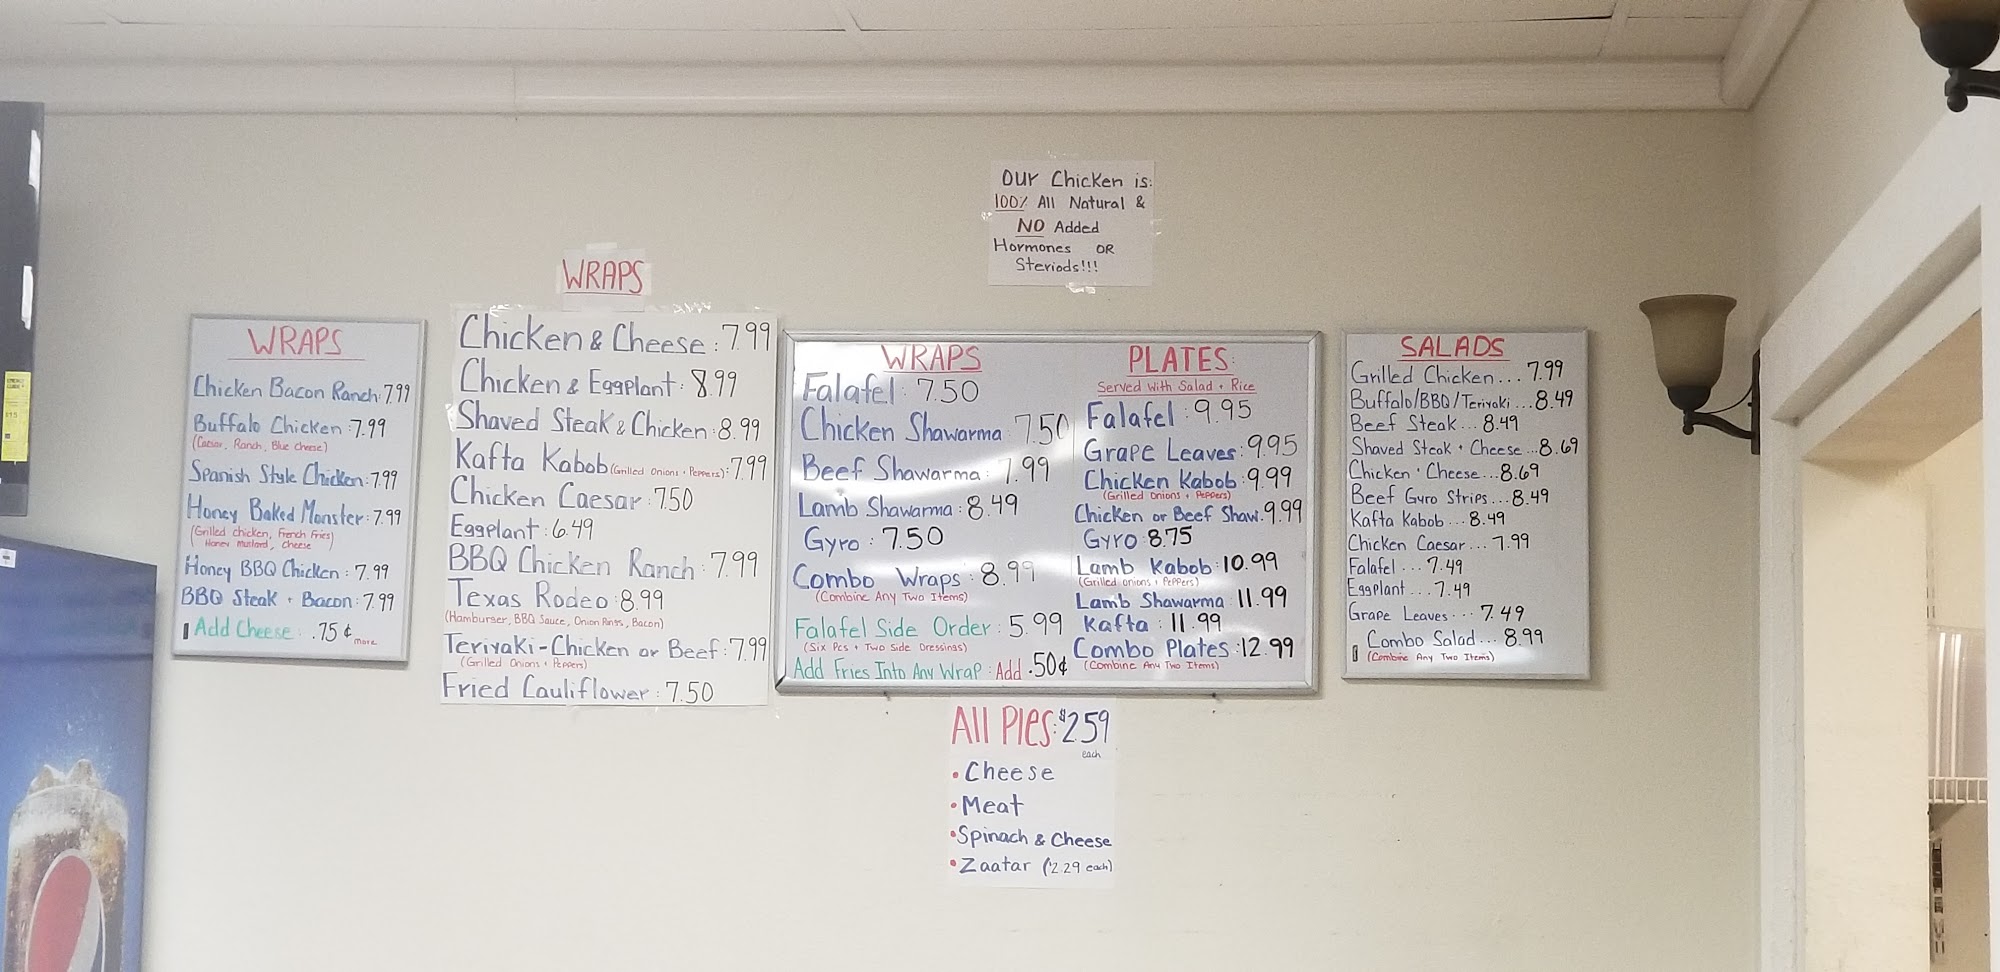 Our Chicken is:
100% All Natural &
NO Added
Hormones OR
Steriods!!!
WRAPS
Chicken Bacon Ranch: 7.99
Buffalo Chicken: 7.99
(Caesar, Ranch, Blue Cheese)
Spanish Style Chicken: 7.99
Honey Baked Monster: 7.99
(Grilled Chicken, French Fries)
Honey Mustard, Cheese
Honey BBQ Chicken: 7.99
BBQ Steak + Bacon: 7.99
Add Cheese: .75¢
more
WRAPS
Chicken & Cheese: 7.99
Chicken & Eggplant: 8.99
Shaved Steak & Chicken: 8.99
Kafta Kabob (Grilled Onions + Peppers): 7.99
Chicken Caesar: 7.50
Eggplant: 6.49
BBQ Chicken Ranch: 7.99
Texas Rodeo: 8.99
(Hamburger, BBQ Sauce, Onion Rings, Bacon)
Teriyaki-Chicken or Beef: 7.99
(Grilled Onions + Peppers)
Fried Cauliflower: 7.50
WRAPS
Falafel: 7.50
Chicken Shawarma: 7.50
Beef Shawarma: 7.99
Lamb Shawarma: 8.49
Gyro: 7.50
Combo Wraps: 8.99
(Combine Any Two Items)
Falafel Side Order: 5.99
(Six Pcs + Two Side Dressings)
Add Fries Into Any Wrap: Add .50¢
PLATES:
Served With Salad + Rice
Falafel: 9.95
Grape Leaves: 9.95
Chicken Kabob: 9.99
(Grilled Onions + Peppers)
Chicken or Beef Shaw. 9.99
Gyro: 8.75
Lamb Kabob: 10.99
(Grilled Onions + Peppers)
Lamb Shawarma: 11.99
Kafta: 11.99
Combo Plates: 12.99
(Combine Any Two Items)
SALADS
Grilled Chicken... 7.99
Buffalo/BBQ/Teriyaki...8.49
Beef Steak... 8.49
Shaved Steak + Cheese...8.69
Chicken + Cheese...8.69
Beef Gyro Strips...8.49
Kafta Kabob...8.49
Chicken Caesar... 7.99
Falafel... 7.49
Eggplant... 7.49
Grape Leaves... 7.49
Combo Salad... 8.99
(Combine Any Two Items)
All Pies: $2.59
each
• Cheese
• Meat
• Spinach & Cheese
• Zaatar ($2.29 each)